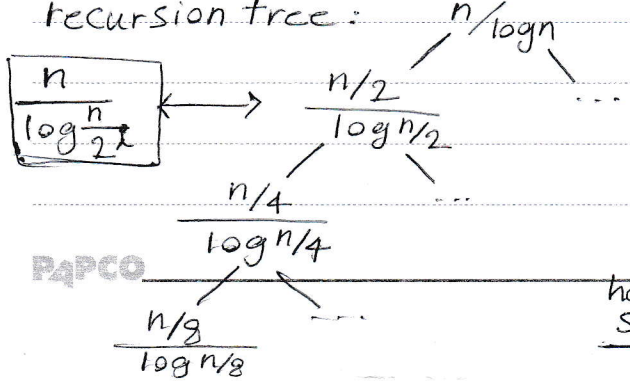 recursion tree:
n/logn
n / log n/2^i
n/2 / log n/2
...
n/4 / log n/4
...
PAPCO
ho
n/8 / log n/8
...
S